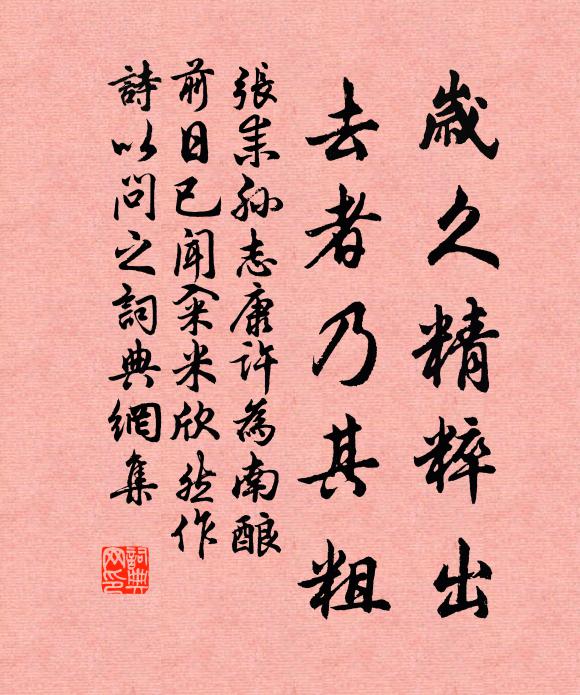 歲久精粹出
去者乃其粗
張耒孫志康許為南酿
前日已聞籴米欣然作
詩以問之詞典網集
詞典
网印